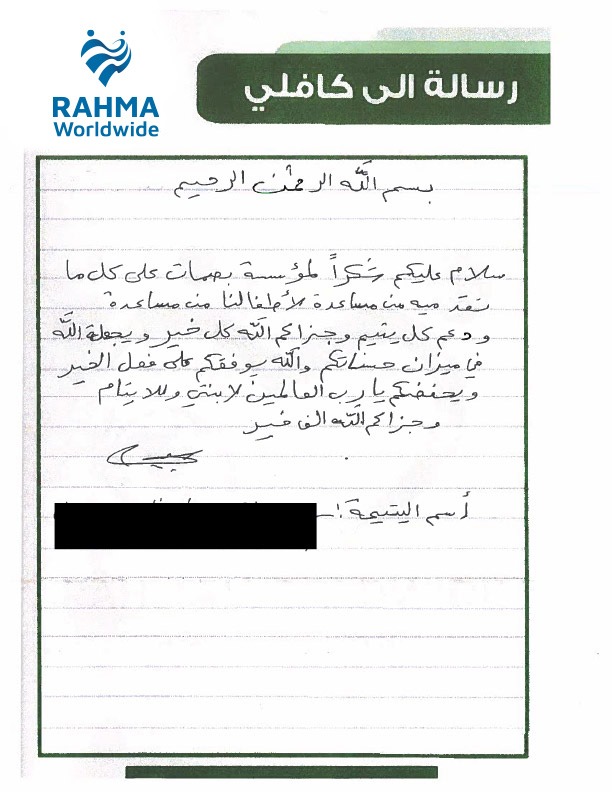 RAHMA
Worldwide
رسالة الى كافلي
بسم الله الرحمن الرحيم
سلام عليكم شكراً لمؤسسة بصمات على كل ما
تقدميه من مساعدة لأطفالنا من مساعدة
ودعم كل يتيم وجزاكم الله كل خير ويجعلة الله
في ميزان حسناتكم والله يوفقكم على فعل الخير
ويحفضكم يا رب العالمين لابنتي وللايتام
وجزاكم الله الف خير
أسم اليتيمة :